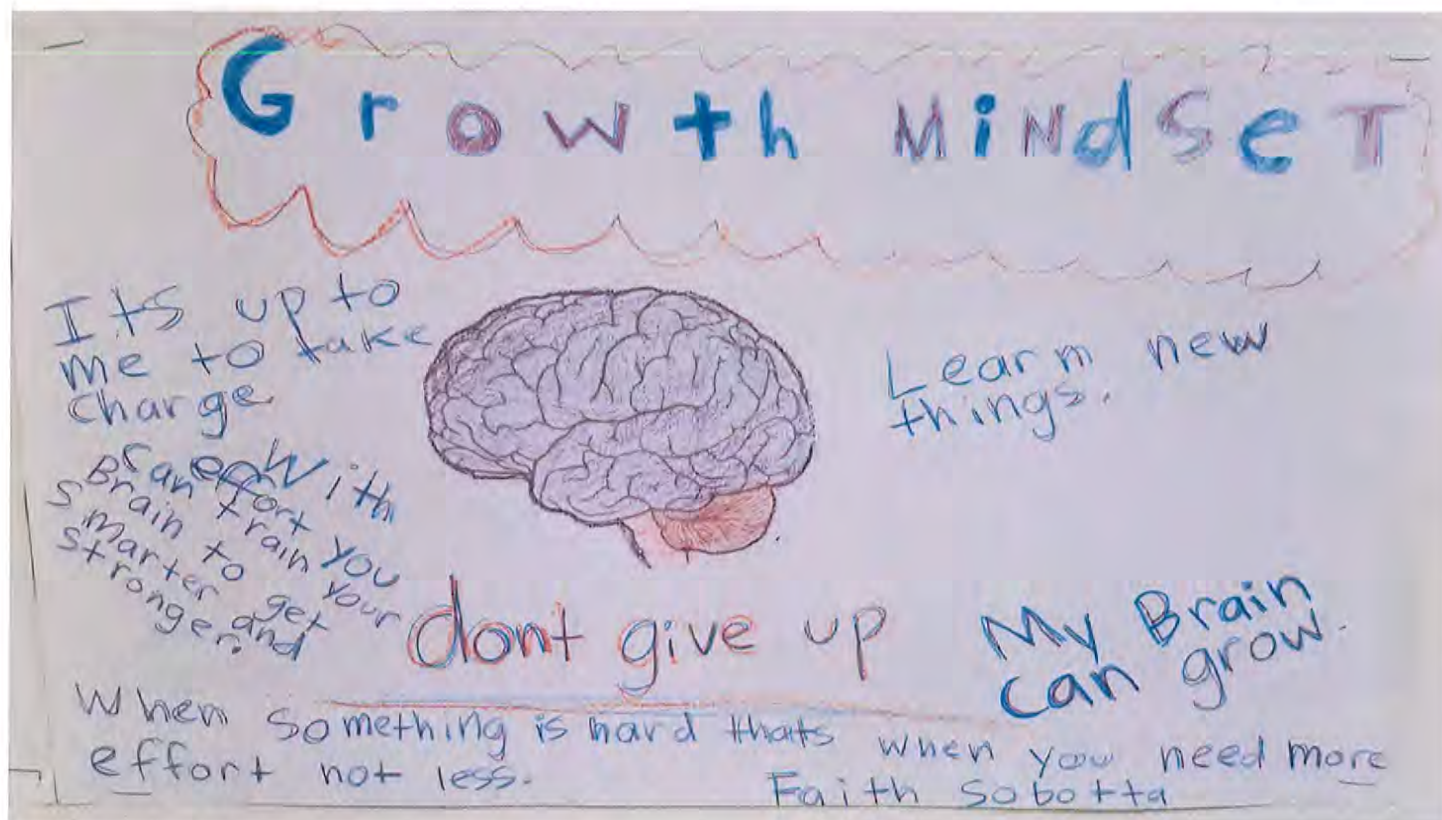 Growth MiNdSeT
Its up to
me to take
charge
Learn new
things.
With
effort you
can train your
Brain to get
smarter and
stronger.
dont give up
My Brain
can grow.
When something is hard thats when you need more
effort not less.
Faith Sobotta